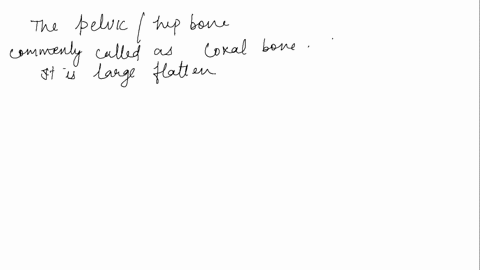 The pelvic / hip bone
commonly called as Coxal bone.
It is large flatten